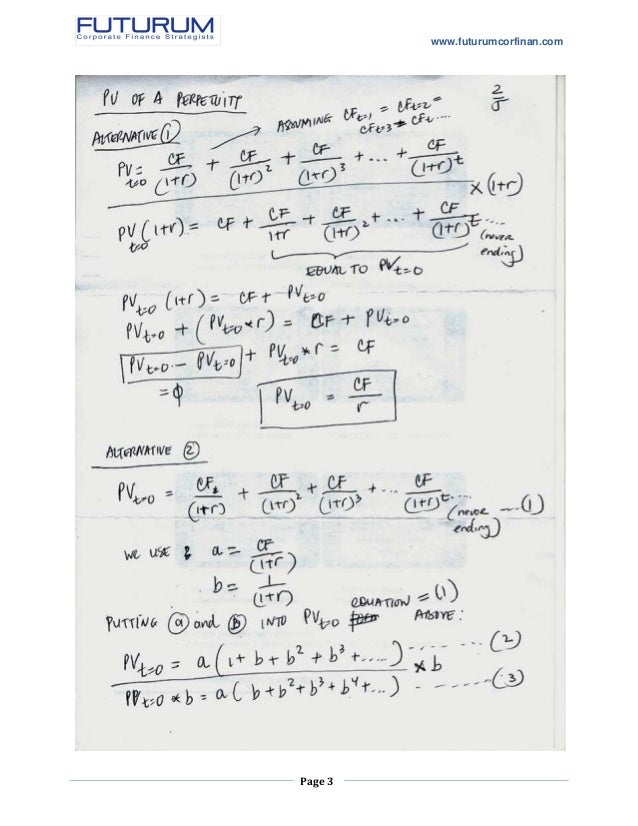 FUTURUM
Corporate Finance Strategists
www.futurumcorfinan.com
2/5
PV OF A PERPETUITY
ALTERNATIVE ① → ASSUMING CFt=1 = CFt=2 =
CFt=3 = CFt....
PVt=0 = CF/(1+r) + CF/(1+r)² + CF/(1+r)³ + ... + CF/(1+r)^t
x (1+r)
PVt=0 (1+r) = CF + CF/1+r + CF/(1+r)² + ... + CF/(1+r)^t.... (never ending)
EQUAL TO PVt=0
PVt=0 (1+r) = CF + PVt=0
PVt=0 + (PVt=0 * r) = CF + PVt=0
PVt=0 - PVt=0 + PVt=0 * r = CF
= ϕ
PVt=0 = CF/r
ALTERNATIVE ②
PVt=0 = CF/(1+r) + CF/(1+r)² + CF/(1+r)³ + ... CF/(1+r)^t.... (never ending) ...(1)
WE USE a = CF/(1+r)
b = 1/(1+r)
PUTTING ⓐ and ⓑ INTO PVt=0 EQUATION = (1) ABOVE :
PVt=0 = a (1 + b + b² + b³ + .....) ........ (2)
* b
PVt=0 * b = a ( b + b² + b³ + b⁴ + ...) ------- (3)
Page 3